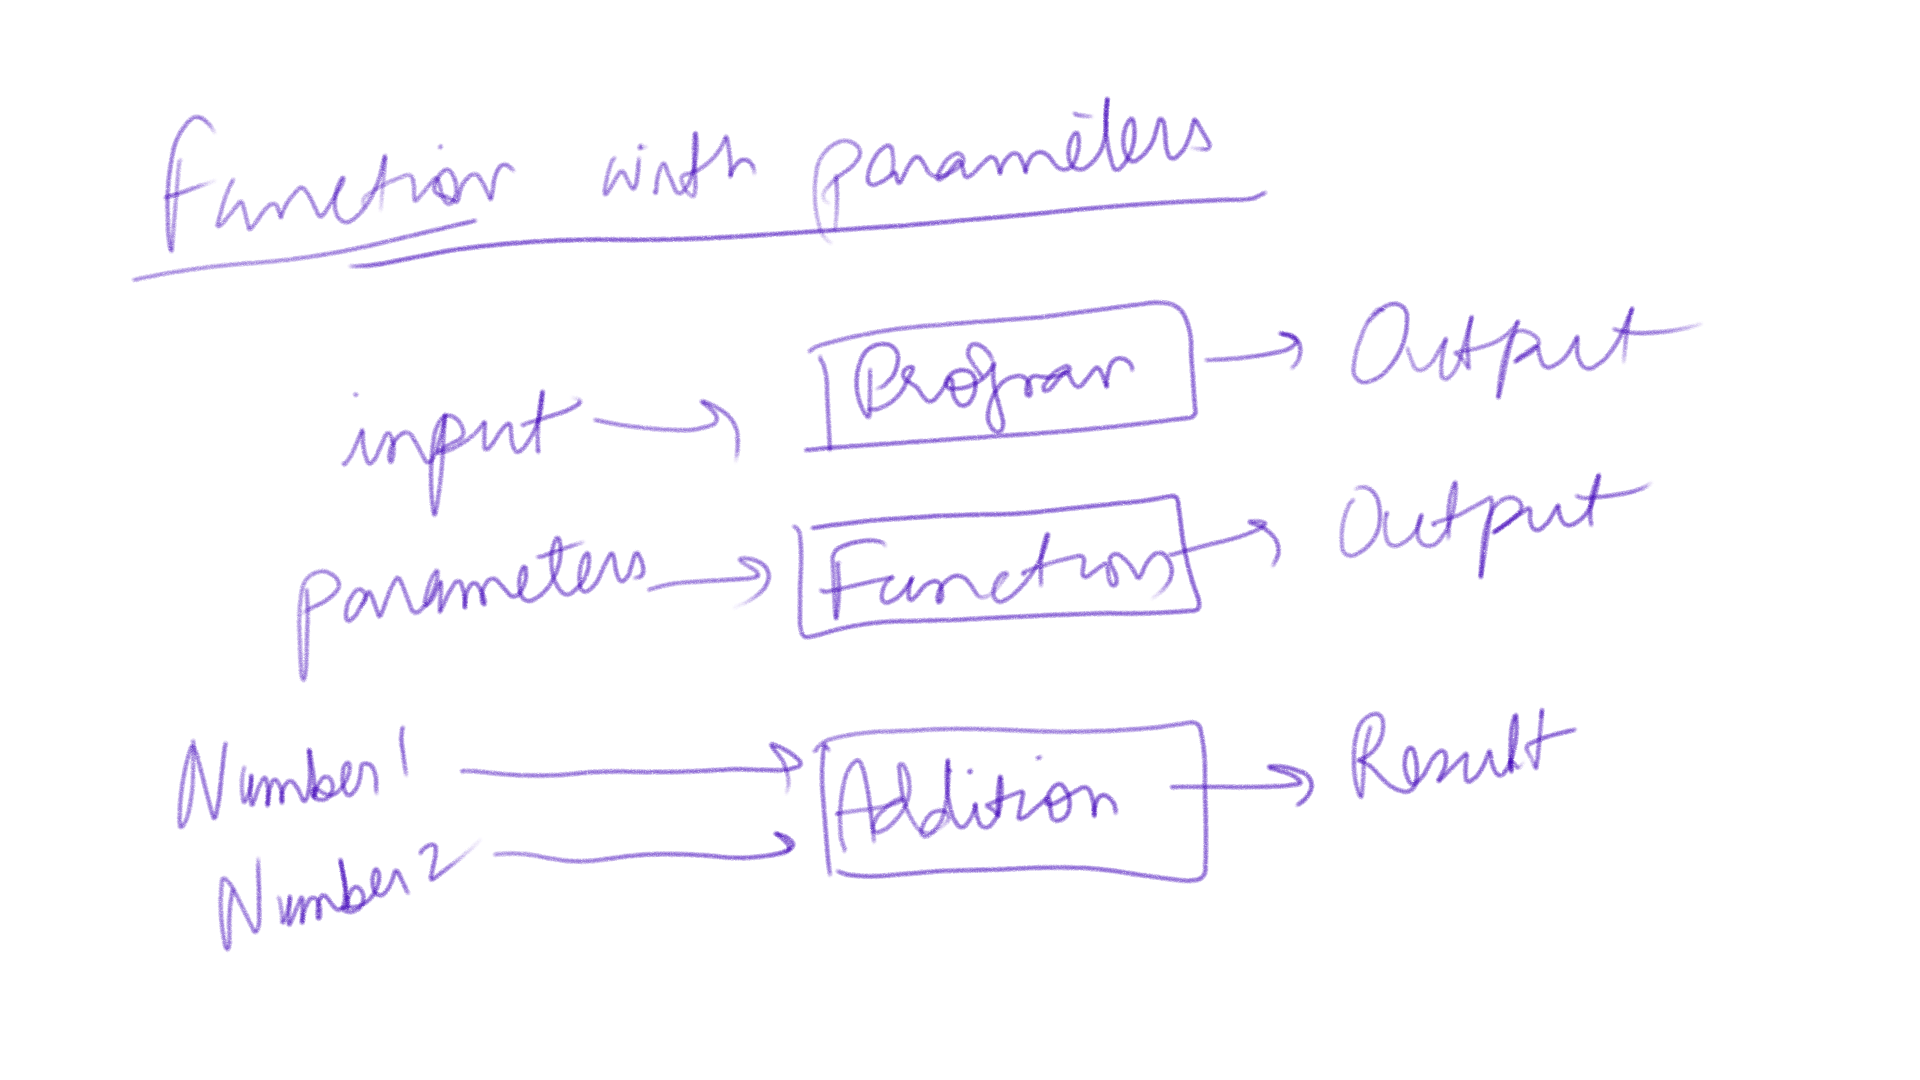 Function with parameters
input → Program → Output
parameters → Function → Output
Number 1 → Addition → Result
Number 2 →